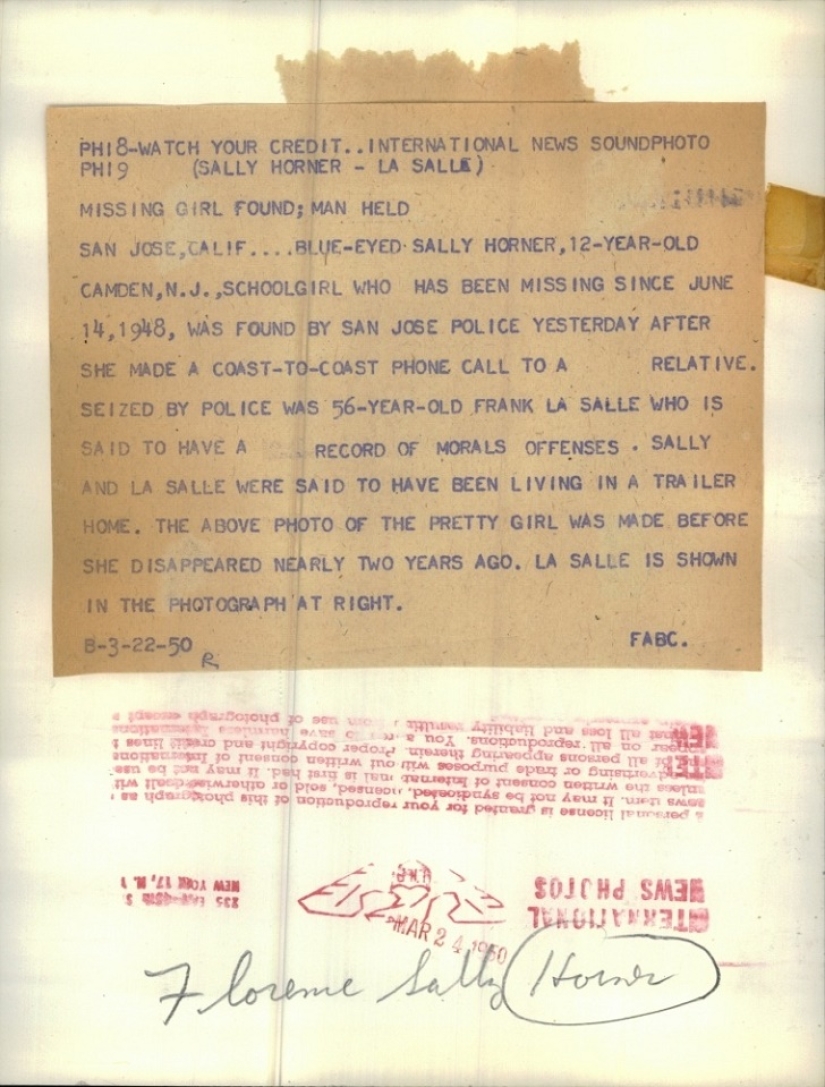 PH18-WATCH YOUR CREDIT..INTERNATIONAL NEWS SOUNDPHOTO
PH19 (SALLY HORNER - LA SALLE)
MISSING GIRL FOUND; MAN HELD
SAN JOSE,CALIF....BLUE-EYED SALLY HORNER,12-YEAR-OLD
CAMDEN,N.J.,SCHOOLGIRL WHO HAS BEEN MISSING SINCE JUNE
14,1948, WAS FOUND BY SAN JOSE POLICE YESTERDAY AFTER
SHE MADE A COAST-TO-COAST PHONE CALL TO A RELATIVE.
SEIZED BY POLICE WAS 56-YEAR-OLD FRANK LA SALLE WHO IS
SAID TO HAVE A RECORD OF MORALS OFFENSES . SALLY
AND LA SALLE WERE SAID TO HAVE BEEN LIVING IN A TRAILER
HOME. THE ABOVE PHOTO OF THE PRETTY GIRL WAS MADE BEFORE
SHE DISAPPEARED NEARLY TWO YEARS AGO. LA SALLE IS SHOWN
IN THE PHOTOGRAPH AT RIGHT.
B-3-22-50 FABC.
R
INTERNATIONAL
NEWS PHOTOS
235 45th S
NEW YORK 17, N. Y
a personal license is granted for your reproduction of this photograph as
news item. It may not be syndicated, licensed, sold or otherwise dealt with
unless the written consent of International is first had. It may not be used
advertising or trade purposes without written consent of International
of all persons appearing therein. Proper copyright and credit lines
appear on all reproductions. You to save harmless International
against all loss and liability from use of photograph except
MAR 24 1950
Florence Sally Horner